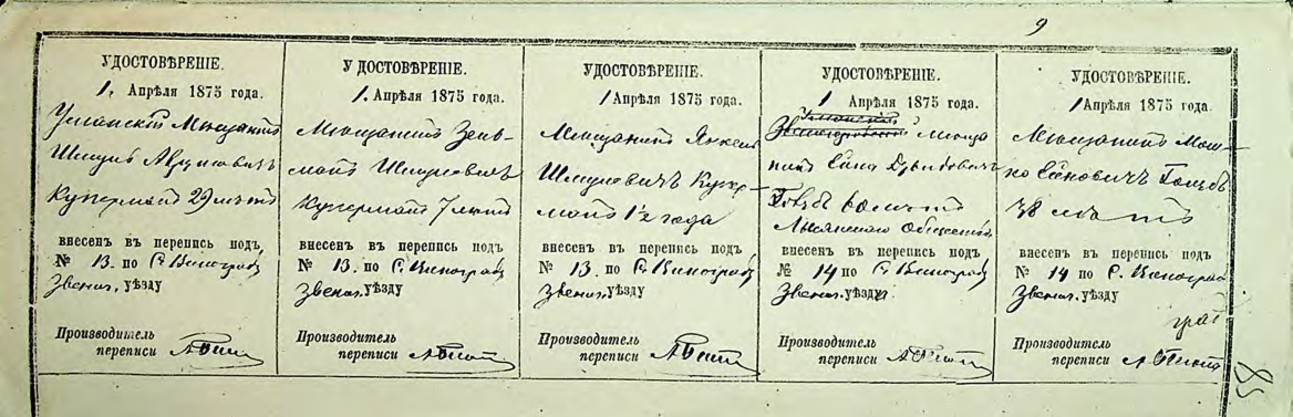 9
УДОСТОВѢРЕНІЕ.
1. Апрѣля 1875 года.
Уманскій Мѣщанинъ
Шмуль Аврумовичъ
Куперманъ 29 лѣтъ
внесенъ въ перепись подъ
№ 13. по С. Виноградъ
Звениг. уѣзду
Производитель
переписи
УДОСТОВѢРЕНІЕ.
1. Апрѣля 1875 года.
Мѣщанинъ Зель-
манъ Шмулевичъ
Куперманъ 7 лѣтъ
внесенъ въ перепись подъ
№ 13. по С. Виноградъ
Звениг. уѣзду
Производитель
переписи
УДОСТОВѢРЕНІЕ.
1 Апрѣля 1875 года.
Мѣщанинъ Янкель
Шмулевичъ Купер-
манъ 1½ года
внесенъ въ перепись подъ
№ 13. по С. Виноградъ
Звениг. уѣзду
Производитель
переписи
УДОСТОВѢРЕНІЕ.
1 Апрѣля 1875 года.
мѣща
нинъ Давидовичъ
Голубъ 60 лѣтъ
Лысянскаго Общества
внесенъ въ перепись подъ
№ 14 по С. Виноградъ
Звениг. уѣзду
Производитель
переписи
УДОСТОВѢРЕНІЕ.
1 Апрѣля 1875 года.
Мѣщанинъ Мош-
ко Голубъ
38 лѣтъ
внесенъ въ перепись подъ
№ 14 по С. Виноградъ
Звениг. уѣзду
Производитель
переписи
85